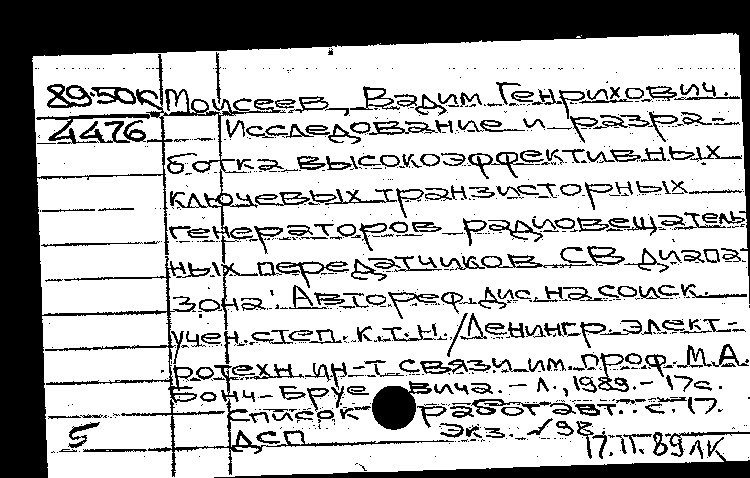 89-50К Моисеев, Вадим Генрихович.
4476 Исследование и разра-
ботка высокоэффективных
ключевых транзисторных
генераторов радиовещатель
ных передатчиков СВ диапа-
зона: Автореф. дис. на соиск.
учен. степ. к.т.н. /Ленингр. элект-
ротехн. ин-т связи им. проф. М.А.
Бонч-Бруевича. - Л., 1989. - 17с.
Список работ авт.: с. 17.
5 ДСП Экз. √98
17.11.89 ЛК